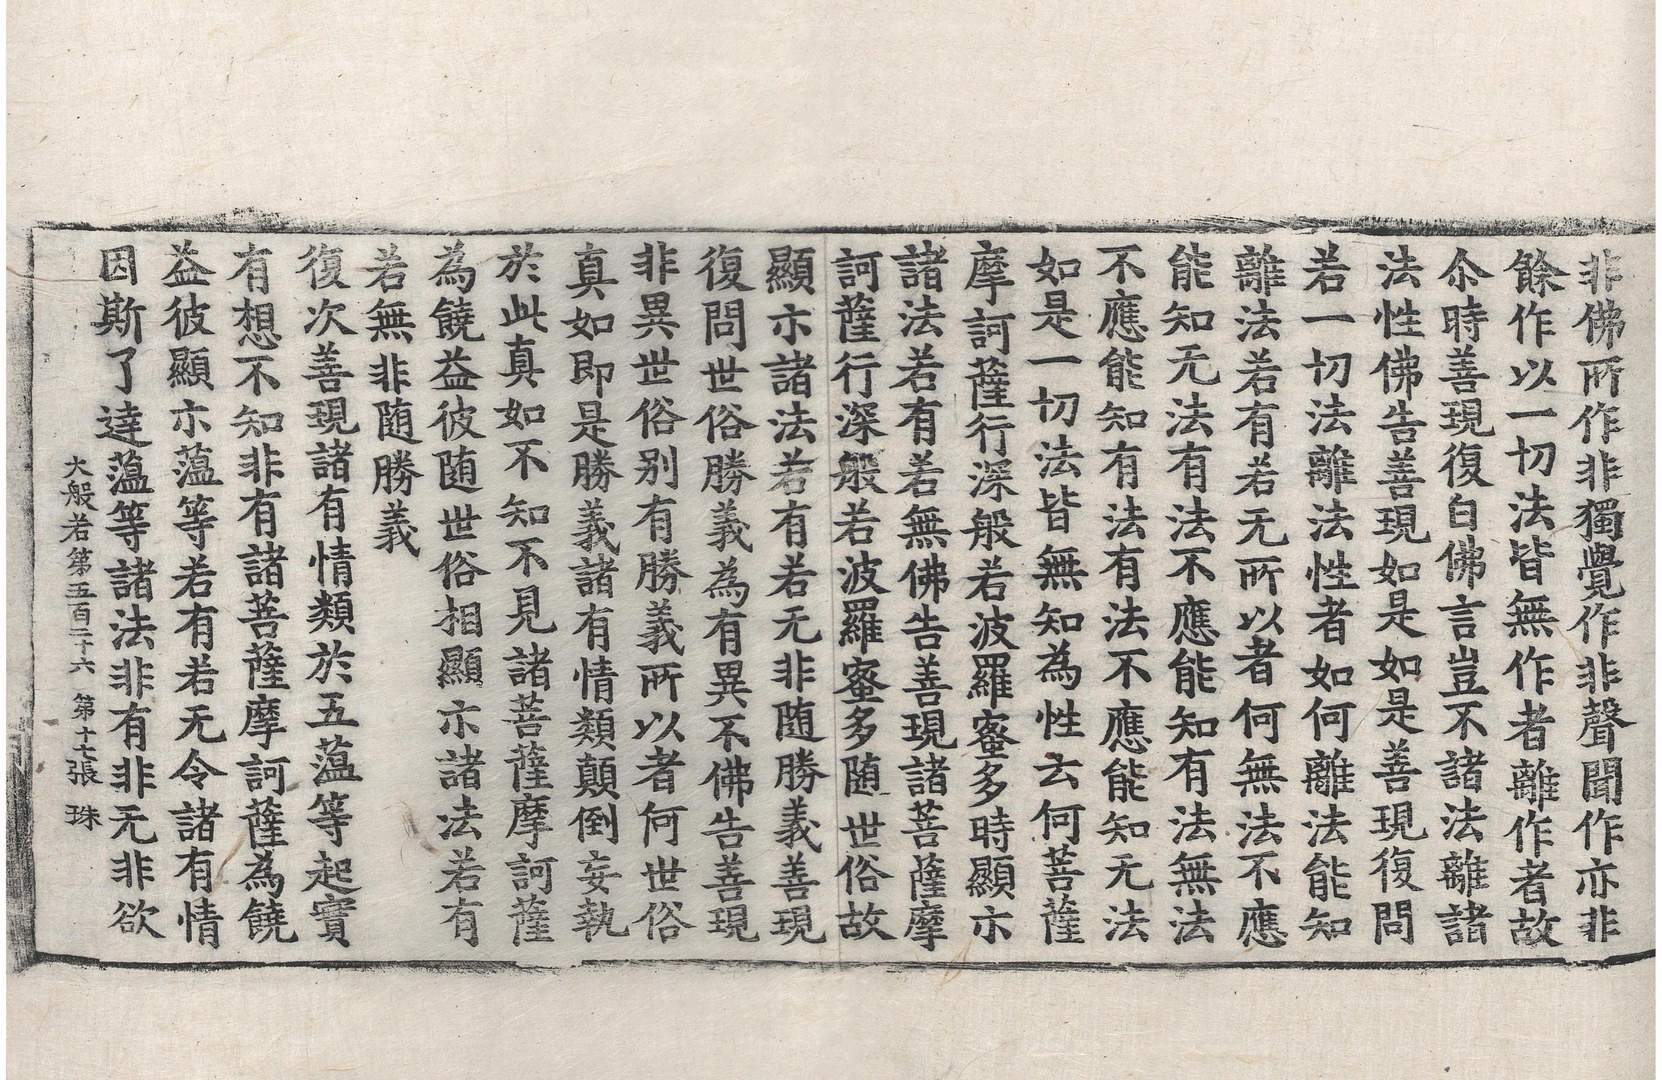 非佛所作非獨覺作非聲聞作亦非
餘作以一切法皆無作者離作者故
尒時善現復白佛言豈不諸法離諸
法性佛告善現如是如是善現復問
若一切法離法性者如何離法能知
離法若有若无所以者何無法不應
能知无法有法不應能知有法無法
不應能知有法有法不應能知无法
如是一切法皆無知為性云何菩薩
摩訶薩行深般若波羅蜜多時顯示
諸法若有若無佛告善現諸菩薩摩
訶薩行深般若波羅蜜多随世俗故
顯示諸法若有若无非随勝義善現
復問世俗勝義為有異不佛告善現
非異世俗别有勝義所以者何世俗
真如即是勝義諸有情類顛倒妄執
於此真如不知不見諸菩薩摩訶薩
為饒益彼随世俗相顯示諸法若有
若無非随勝義
復次善現諸有情類於五藴等起實
有想不知非有諸菩薩摩訶薩為饒
益彼顯示藴等若有若无令諸有情
因斯了達藴等諸法非有非无非欲
大般若第五百二十六 第十七張 珠